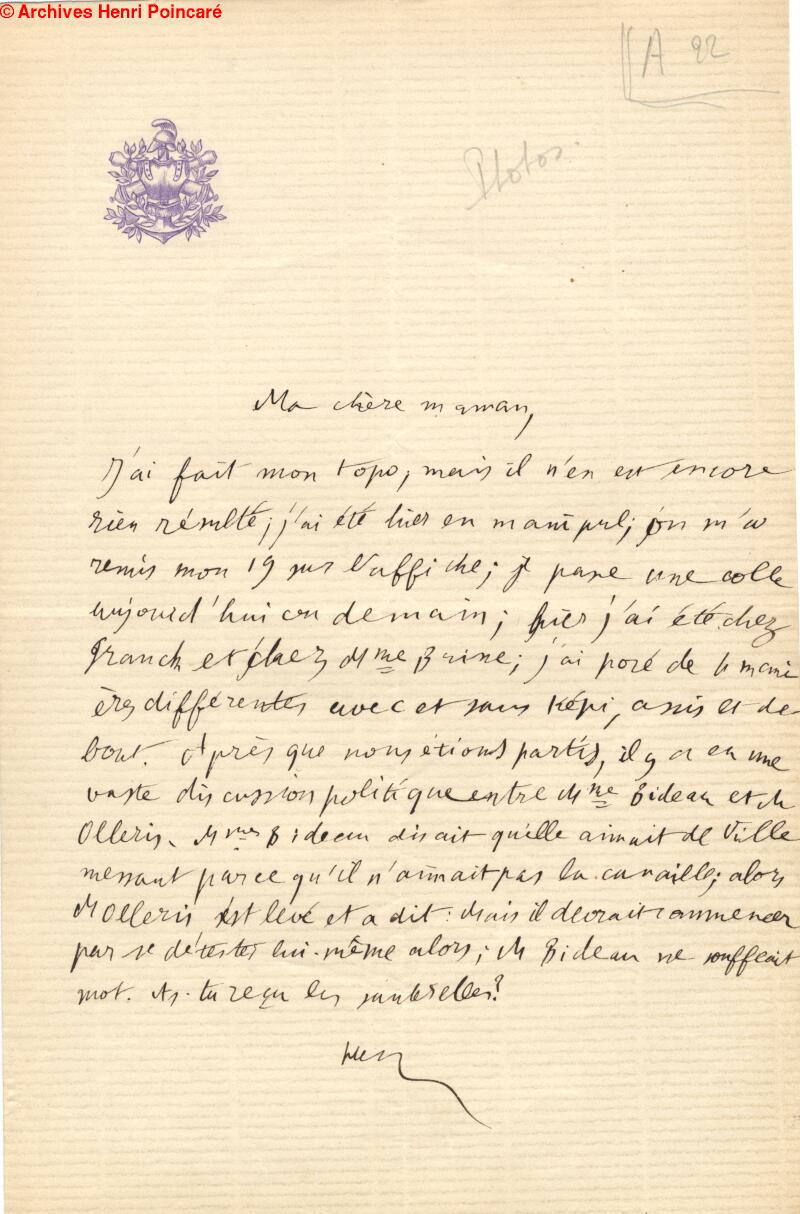 © Archives Henri Poincaré
A 92
Photos.
Ma chère maman,
J'ai fait mon topo, mais il n'en est encore
rien résulté; j'ai été hier en manipul; on m'a
remis mon 19 sur l'affiche; je passe une colle
aujourd'hui ou demain; hier j'ai été chez
Franck et chez Mme ; j'ai posé de 4 mani
ères différentes avec et sans képi, assis et de-
bout. Après que nous étions partis, il y a eu une
vaste discussion politique entre Mme Bideau et M
Olleris. Mme Bideau disait qu'elle aimait de Ville
messant parce qu'il n'aimait pas la canaille; alors
M Olleris s'est levé et a dit: Mais il devrait commencer
par se détester lui-même alors; M Bideau ne soufflait
mot. As-tu reçu les ?
Hen